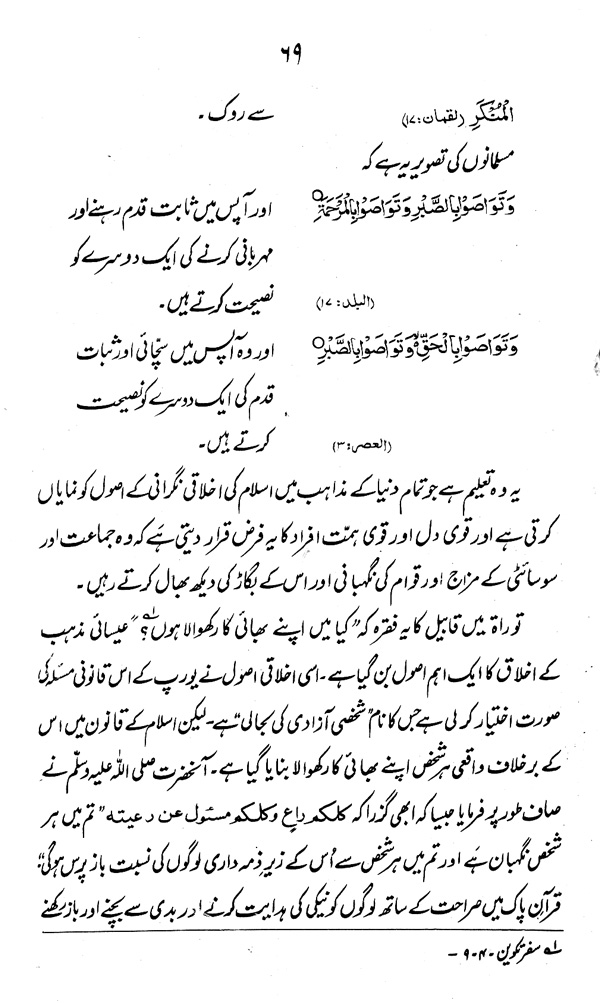 ۶۹
الْمُنْكَرِ (لقمان:۱۷) سے روک ۔
مسلمانوں کی تصویر یہ ہے کہ
وَتَوَاصَوْا بِالصَّبْرِ وَتَوَاصَوْا بِالْمَرْحَمَةِ ○ اور آپس میں ثابت قدم رہنے اور
مہربانی کرنے کی ایک دوسرے کو
(البلد: ۱۷) نصیحت کرتے ہیں ۔
وَتَوَاصَوْا بِالْحَقِّ ۙ وَتَوَاصَوْا بِالصَّبْرِ ○ اور وہ آپس میں سچائی اور ثبات
قدم کی ایک دوسرے کو نصیحت
(العصر: ۳) کرتے ہیں ۔
یہ وہ تعلیم ہے جو تمام دنیا کے مذاہب میں اسلام کی اخلاقی نگرانی کے اصول کو نمایاں
کرتی ہے اور قوی دل اور قوی ہمت افراد کا یہ فرض قرار دیتی ہے کہ وہ جماعت اور
سوسائٹی کے مزاج اور قوام کی نگہبانی اور اس کے بگاڑ کی دیکھ بھال کرتے رہیں ۔
توراۃ میں قابیل کا یہ فقرہ کہ ”کیا میں اپنے بھائی کا رکھوالا ہوں؟“ ؎۱ عیسائی مذہب
کے اخلاق کا ایک اہم اصول بن گیا ہے ۔ اسی اخلاقی اصول نے یورپ کے اس قانونی مسئلہ کی
صورت اختیار کر لی ہے جس کا نام ”شخصی آزادی کی بحالی“ ہے ۔ لیکن اسلام کے قانون میں اس
کے برخلاف واقعی ہر شخص اپنے بھائی کا رکھوالا بنایا گیا ہے ۔ آنحضرت صلی اللہ علیہ وسلم نے
صاف طور پر فرمایا جیسا کہ ابھی گزرا کہ کلکم راع وکلکم مسئول عن رعیته ”تم میں ہر
شخص نگہبان ہے اور تم میں ہر شخص سے اُس کے زیرِ ذمہ داری لوگوں کی نسبت باز پرس ہوگی“
قرآنِ پاک میں صراحت کے ساتھ لوگوں کو نیکی کی ہدایت کرنے اور بدی سے بچنے اور باز رکھنے
؎۱ سفر تکوین ۔ ۴ ۔ ۹ ۔